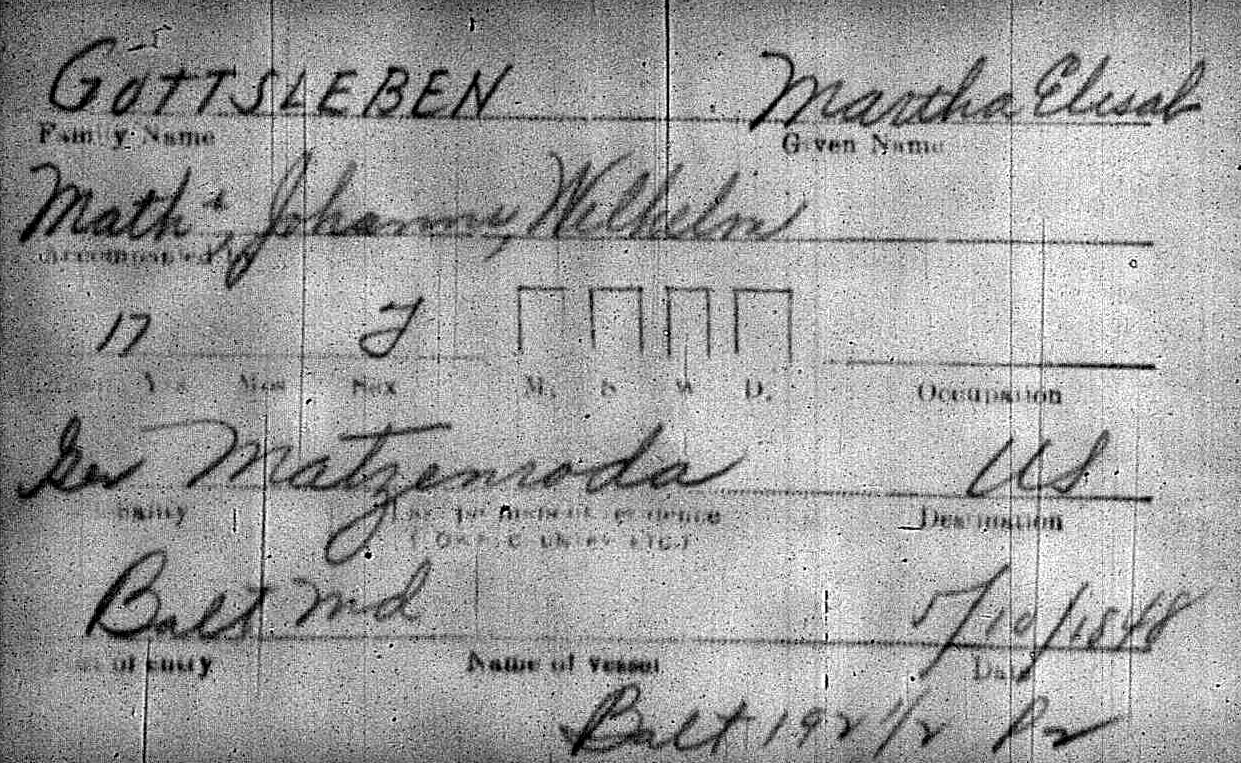 GOTTSLEBEN Martha Elisab
Family Name Given Name
Math & Johanne, Wilhelm
Accompanied by
17 F
Yrs Mos Sex M. S W D. Occupation
Ger Matzenroda US
permanent residence Destination
Balt Md 5/10/1848
of entry Name of vessel Date
Balt 192 1/2